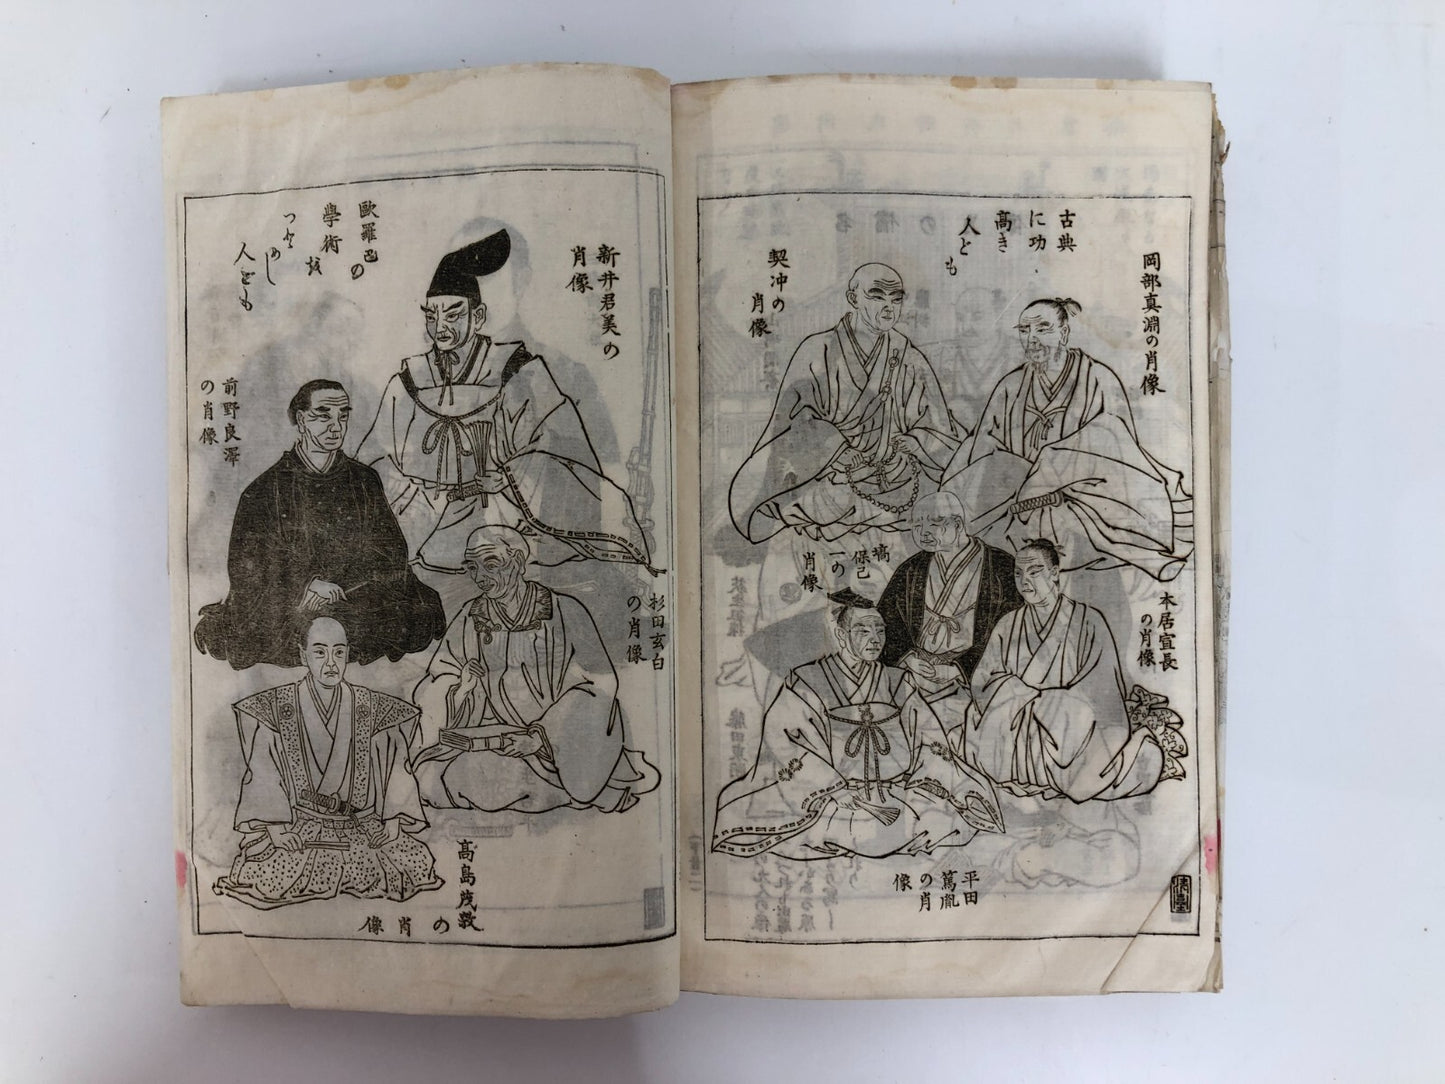 古典
に功
高き
人とも
岡部真淵の肖像
契冲の
肖像
塙
保己
一の
肖像
本居宣長
の肖像
平田
篤胤
の肖
像
歐羅巴の
學術を
つとめし
人とも
新井君美の
肖像
前野良澤
の肖像
杉田玄白
の肖像
高島茂敦
の肖像